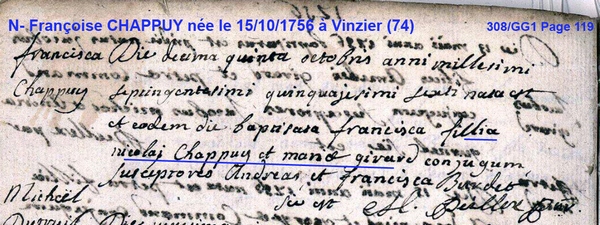 N- Françoise CHAPPUY née le 15/10/1756 à Vinzier (74)
308/GG1 Page 119
francisca Die decima quinta octobris anni millesimi
Chappuy septingentesimi quinquagesimi sexti nata est
et eodem die baptisata francisca fillia
nicolai Chappuy et mariæ girard conjugum
susceptores Andreas et francisca Burdet
Michaël sic est